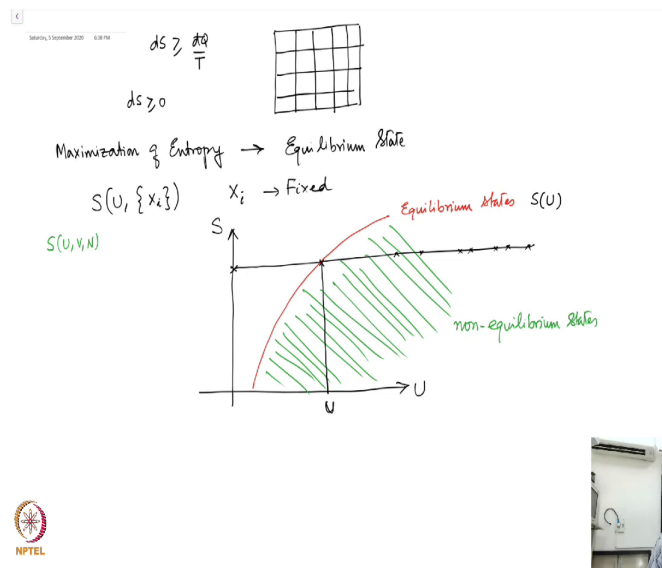 Saturday, 5 September 2020 6:38 PM
dS ⩾ đQ/T
dS ⩾ 0
Maximization of Entropy → Equilibrium State
S(U, {Xᵢ}) Xᵢ → Fixed
Equilibrium States S(U)
S
S(U,V,N)
non-equilibrium States
U
U
NPTEL